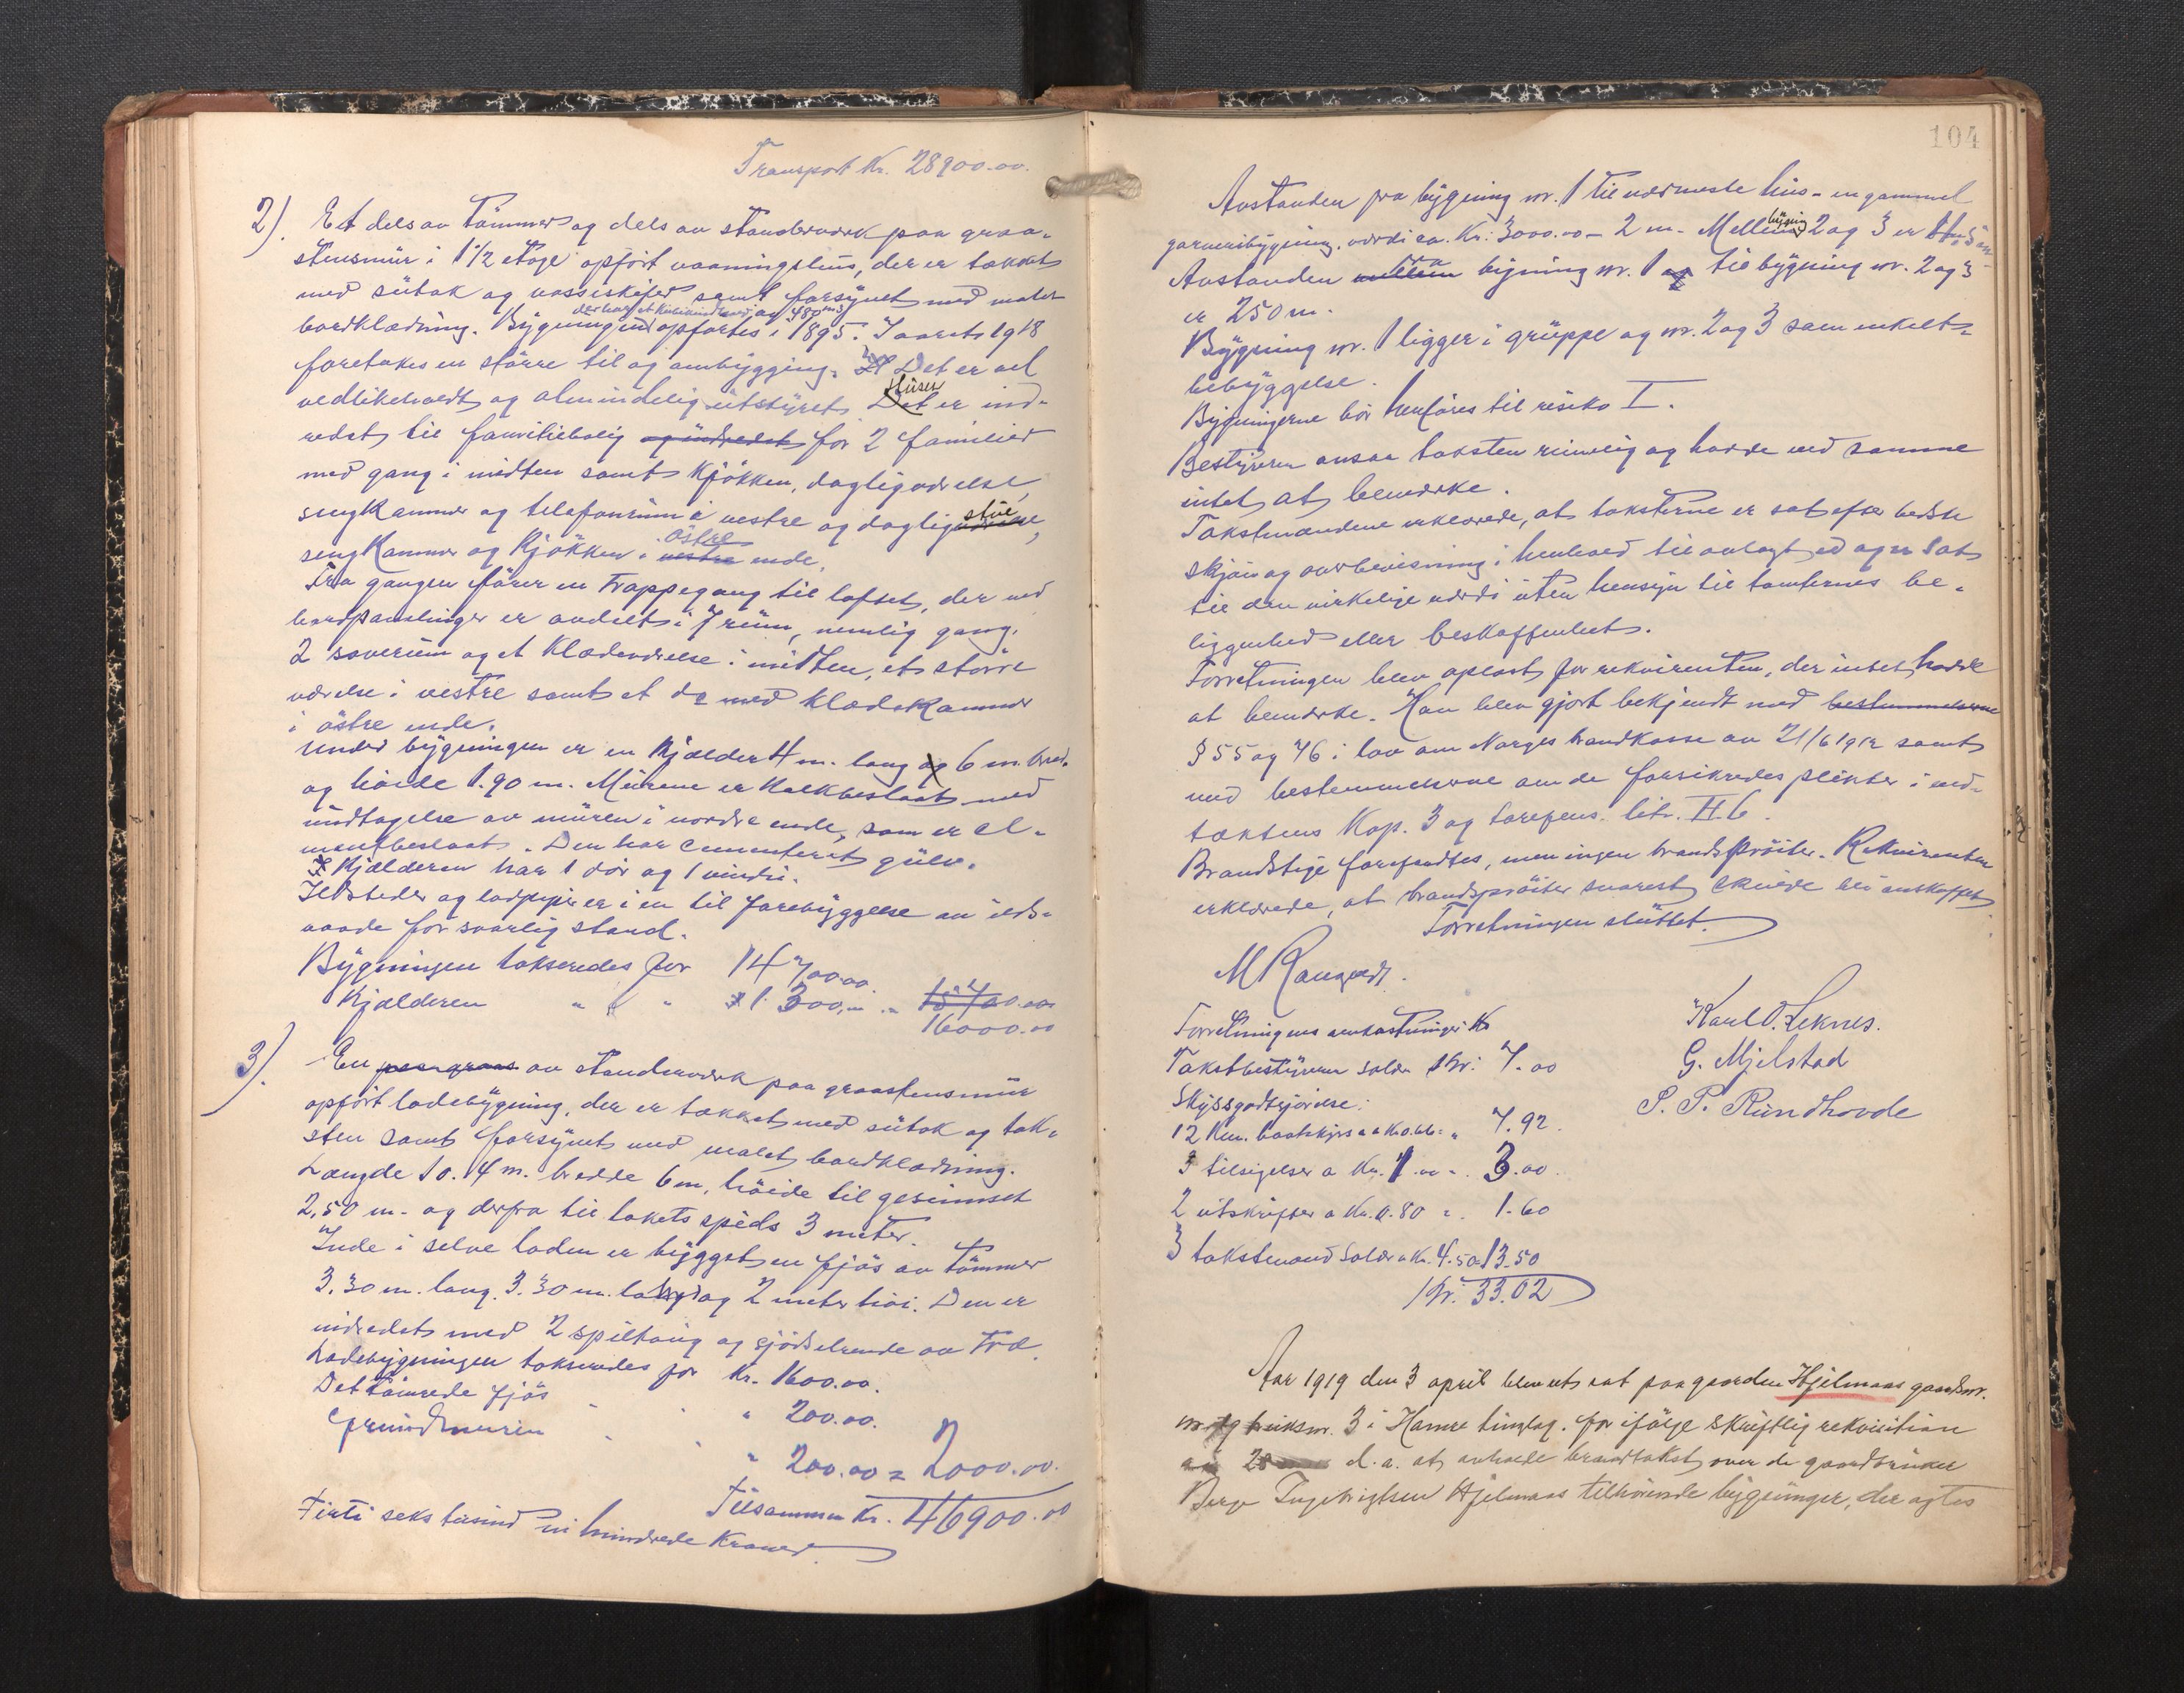 Transport Kr. 28900.00.
2). Et dels av tømmer og dels av stenderværk paa graa-
stensmür i 1 1/2 etage opført vaaningshüs, der er tækket
med sütak og vossiskifer samt forsynet med malet
bordklædning. Bygningen der har et kubikindhold av 480 m3 opførtes i 1895. I aarets 1918
foretokes en større til og ombygging. Det er vel
vedlikeholdt og almindelig ütstyret. Hüset er ind-
redet til familiebolig og indredet for 2 familier
med gang i midten samt kjøkken, dagligværelse,
sengkammer og telefonrüm i vestre og dagligstüe,
sengkammer og kjøkken i østre ende.
Fra gangen fører en trappegang til loftet, der ved
bordpanelinger er avdelt i 7 rüm, nemlig gang,
2 soverüm og et klædeværelse i midten, et større
værelse i vestre samt et do med klædekammer
i østre ende.
Under bygningen er en kjælder 4 m. lang og 6 m. bred
og høide 1.90 m. Mürene er kalkbeslaat med
undtagelse av müren i nordre ende, som er ce-
mentbeslaat. Den har cementeret gülv.
Kjælderen har 1 dør og 1 vindü.
Ildsteder og lodpiper er i en til forebyggelse av ilds-
vaade forsvarlig stand.
Bygningen takseredes for 14700.00.
Kjælderen " " " 1300,00 = 15700.00
16000.00
3). En av stenderværk paa graastensmür
opført ladebygning, der er tækket med sütak og tak-
sten samt forsynet med malet bordklædning.
Længde 10.4 m. bredde 6 m, høide til gesimset
2,50 m. og derfra til takets spids 3 meter.
Inde i selve laden er bygget en fjøs av tømmer
3.30 m. lang. 3.30 m. og 2 meter høi. Den er
indredet med 2 spiltaug og gjødselrende av træ.
Ladebygningen takseredes for Kr. 1600.00.
Det tømrede fjøs " " " 200.00.
Grundmuren " " " 200.00 = 2000.00.
Tilsammen Kr. 46900.00
Firti seks tusind ni hundrede Kroner.
104
Avstanden fra bygning nr. 1 til nærmeste hüs - en gammel
garveribygning, værdi ca. Kr: 3000.00 - 2 m. Mellem bygning 2 og 3 er
Avstanden mellem fra bygning nr. 1 og til bygning nr. 2 og 3
er 250 m.
Bygning nr. 1 ligger i grüppe og nr. 2 og 3 som enkelt-
bebyggelse.
Bygningerne bør henføres til risiko I.
Bestyreren ansaa taksten rimelig og havde ved samme
intet at bemærke.
Takstmændene erklærede, at taksterne er sat efter bedste
skjøn og overbevisning i henhold til avlagt ed og er sat
til den virkelige værdi üten hensyn til tomternes be-
liggenhed eller beskaffenhet.
Forretningen blev oplæst for rekvirenten, der intet havde
at bemærke. Han blev gjort bekjendt med bestemmelserne
§ 55 og 76 i lov om Norges brandkasse av 21/6 1912 samt
med bestemmelserne om de forsikredes plikter i ved-
tækters Kap. 3 og tarifens litr. H. 6.
Brandstige forefandtes, men ingen brandsprøiter. Rekvirenten
erklærede, at brandsprøiter snarest skulde bli anskaffet.
Forretningen slüttet.
Forretningens omkostninger Kr
Takstbestyreren salær Kr: 7.00
Skyssgodtgjørelse:
12 Km. baatskyss a Kr 0.66 = " 7.92.
3 tilsigelser a Kr. 1.00 = . 3.00.
2 ütskrifter a Kr. 0.80 = . 1.60
3 takstmænd Salær a Kr. 4.50 13.50
Kr. 33.02
Karl O. Leknes.
G. Mjelstad
P. P. Rundhovde
Aar 1919 den 3 april blev ret sat paa gaarden Hjelmaas gaardsnr.
og bruksnr. 3 i Hamre tinglag. for ifølge skriftlig rekvisition
av 28 d.a. at avholde brandtakst over de gaardbrüker
Berge Ingebrigtsen Hjelmaas tilhørende bygninger, der agtes